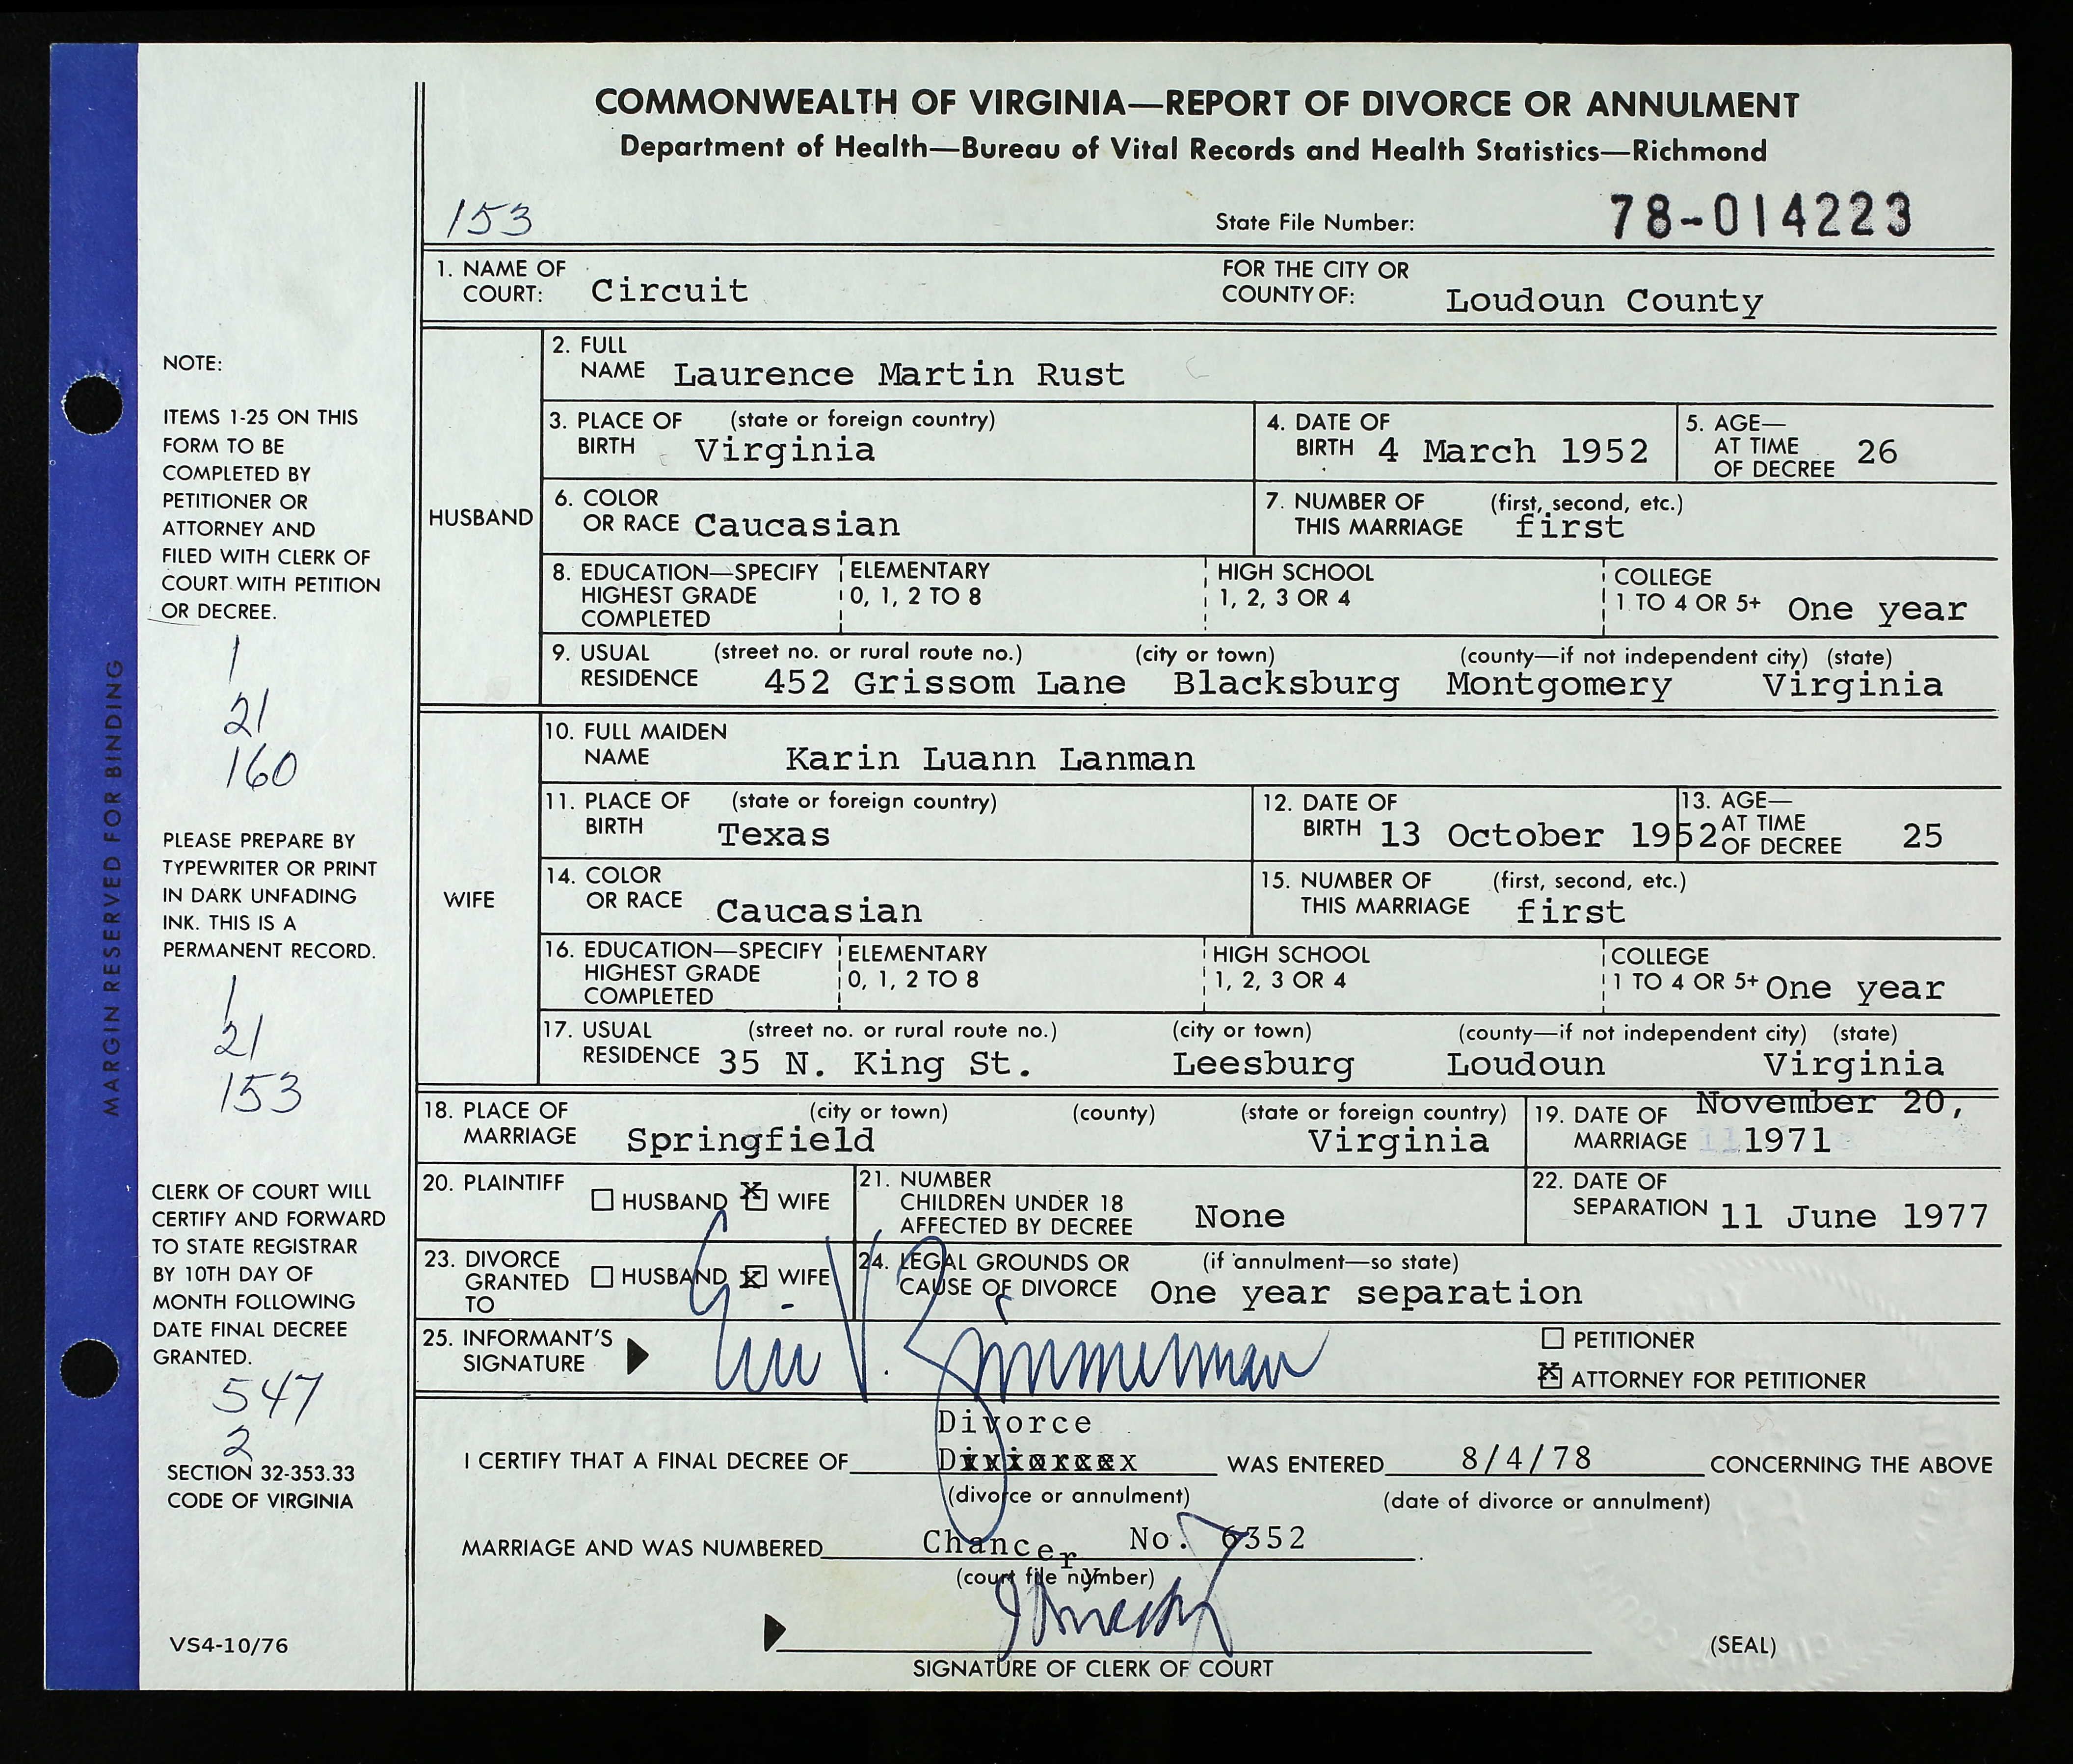 COMMONWEALTH OF VIRGINIA—REPORT OF DIVORCE OR ANNULMENT
Department of Health—Bureau of Vital Records and Health Statistics—Richmond
153
State File Number: 78-014223
1. NAME OF COURT: Circuit
FOR THE CITY OR COUNTY OF: Loudoun County
HUSBAND
2. FULL NAME Laurence Martin Rust
3. PLACE OF BIRTH (state or foreign country) Virginia
4. DATE OF BIRTH 4 March 1952
5. AGE— AT TIME OF DECREE 26
6. COLOR OR RACE Caucasian
7. NUMBER OF THIS MARRIAGE (first, second, etc.) first
8. EDUCATION—SPECIFY HIGHEST GRADE COMPLETED
ELEMENTARY 0, 1, 2 TO 8
HIGH SCHOOL 1, 2, 3 OR 4
COLLEGE 1 TO 4 OR 5+ One year
9. USUAL RESIDENCE (street no. or rural route no.) (city or town) (county—if not independent city) (state)
452 Grissom Lane Blacksburg Montgomery Virginia
WIFE
10. FULL MAIDEN NAME Karin Luann Lanman
11. PLACE OF BIRTH (state or foreign country) Texas
12. DATE OF BIRTH 13 October 1952
13. AGE— AT TIME OF DECREE 25
14. COLOR OR RACE Caucasian
15. NUMBER OF THIS MARRIAGE (first, second, etc.) first
16. EDUCATION—SPECIFY HIGHEST GRADE COMPLETED
ELEMENTARY 0, 1, 2 TO 8
HIGH SCHOOL 1, 2, 3 OR 4
COLLEGE 1 TO 4 OR 5+ One year
17. USUAL RESIDENCE (street no. or rural route no.) (city or town) (county—if not independent city) (state)
35 N. King St. Leesburg Loudoun Virginia
18. PLACE OF MARRIAGE (city or town) (county) (state or foreign country)
Springfield Virginia
19. DATE OF MARRIAGE November 20, 1971
20. PLAINTIFF HUSBAND X WIFE
21. NUMBER CHILDREN UNDER 18 AFFECTED BY DECREE None
22. DATE OF SEPARATION 11 June 1977
23. DIVORCE GRANTED TO HUSBAND X WIFE
24. LEGAL GROUNDS OR CAUSE OF DIVORCE (if annulment—so state) One year separation
25. INFORMANT'S SIGNATURE
Zimmerman
PETITIONER
X ATTORNEY FOR PETITIONER
Divorce
I CERTIFY THAT A FINAL DECREE OF WAS ENTERED 8/4/78 CONCERNING THE ABOVE
(divorce or annulment) (date of divorce or annulment)
MARRIAGE AND WAS NUMBERED Chancery No. 6352
(court file number)
SIGNATURE OF CLERK OF COURT
(SEAL)
MARGIN RESERVED FOR BINDING
NOTE:
ITEMS 1-25 ON THIS
FORM TO BE
COMPLETED BY
PETITIONER OR
ATTORNEY AND
FILED WITH CLERK OF
COURT WITH PETITION
OR DECREE.
1
21
160
PLEASE PREPARE BY
TYPEWRITER OR PRINT
IN DARK UNFADING
INK. THIS IS A
PERMANENT RECORD.
1
21
153
CLERK OF COURT WILL
CERTIFY AND FORWARD
TO STATE REGISTRAR
BY 10TH DAY OF
MONTH FOLLOWING
DATE FINAL DECREE
GRANTED.
547
2
SECTION 32-353.33
CODE OF VIRGINIA
VS4-10/76